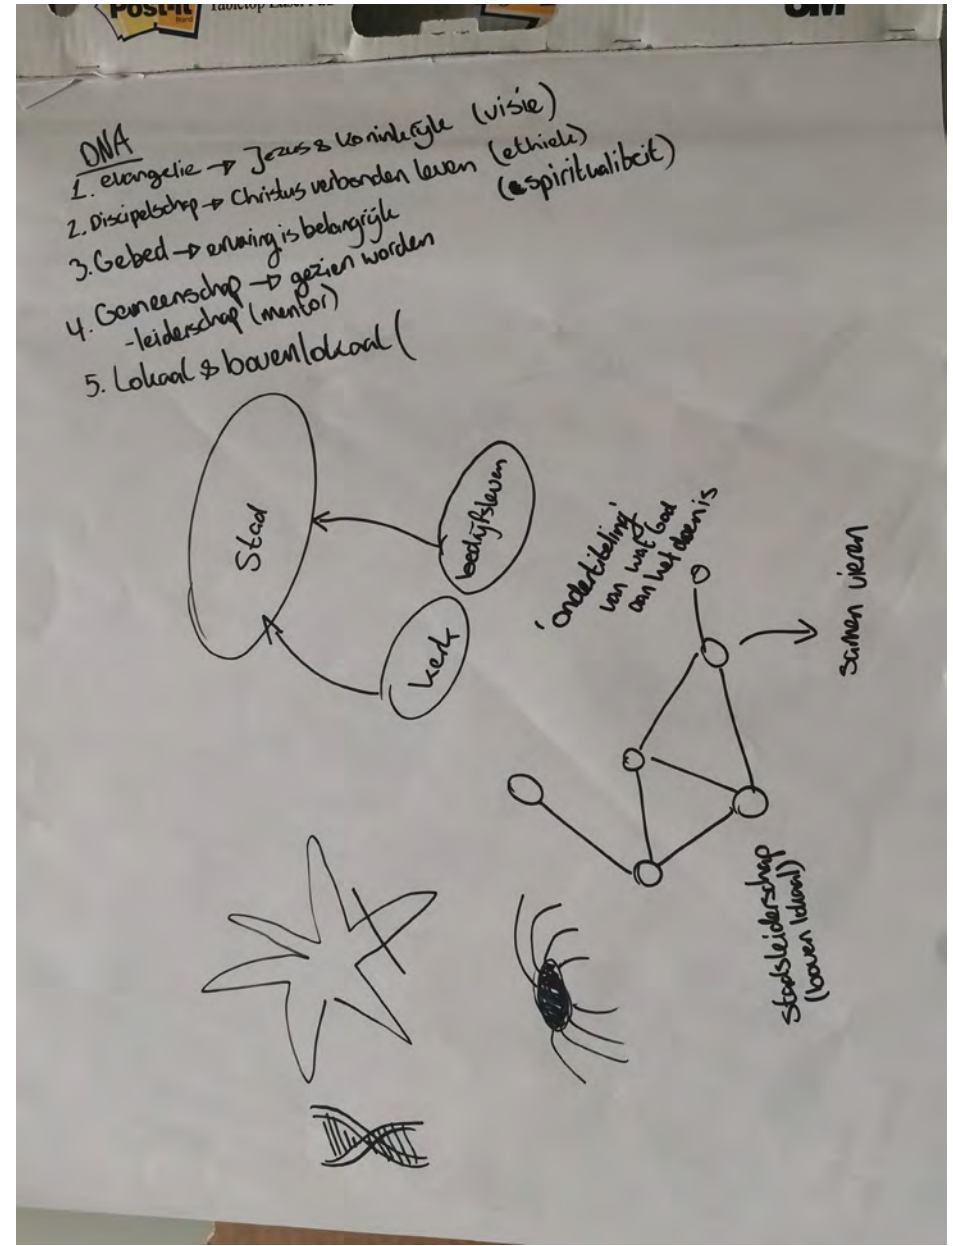 Post-it
Tabletop Easel Pad
3M
DNA
1. evangelie → Jezus & koninkrijk (visie)
2. Discipelschap → Christus verbonden leven (ethiek)
3. Gebed → ervaring is belangrijk (spiritualiteit)
4. Gemeenschap → gezien worden
- leiderschap (mentor)
5. Lokaal & bovenlokaal (
Stad
bedrijfsleven
kerk
'ondertiteling'
van wat God
aan het doen is
samen vieren
stadsleiderschap
(boven lokaal)